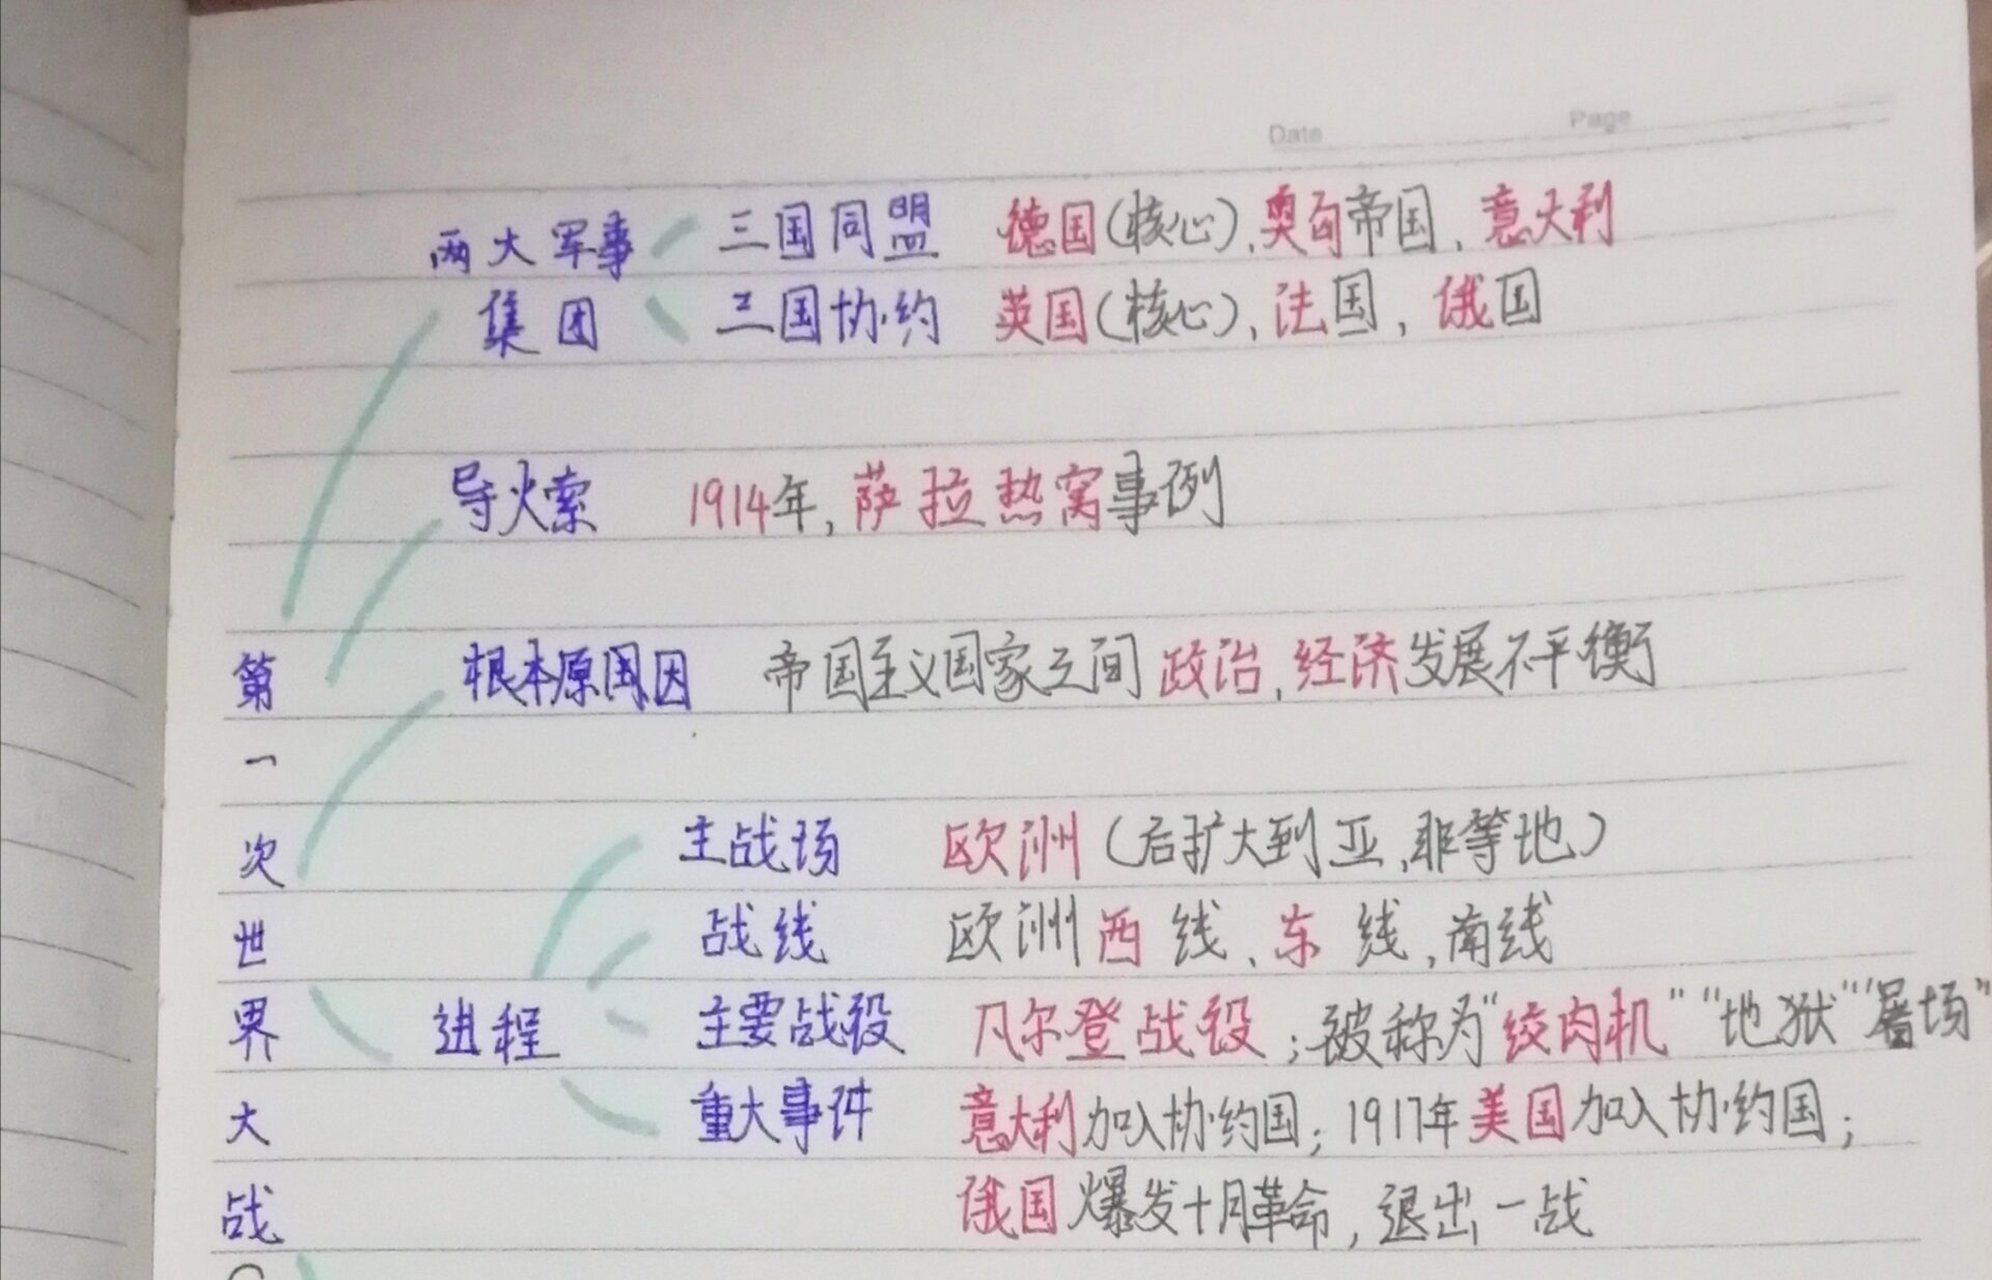 Date Page
两大军事 三国同盟 德国(核心),奥匈帝国,意大利
集团 三国协约 英国(核心),法国,俄国
导火索 1914年,萨拉热窝事例
第 根本原因 帝国主义国家之间政治,经济发展不平衡
一
次 主战场 欧洲(后扩大到亚,非等地)
世 战线 欧洲西线、东线,南线
界 进程 主要战役 凡尔登战役;被称为"绞肉机""地狱""屠场"
大 重大事件 意大利加入协约国;1917年美国加入协约国;
战 俄国爆发十月革命,退出一战